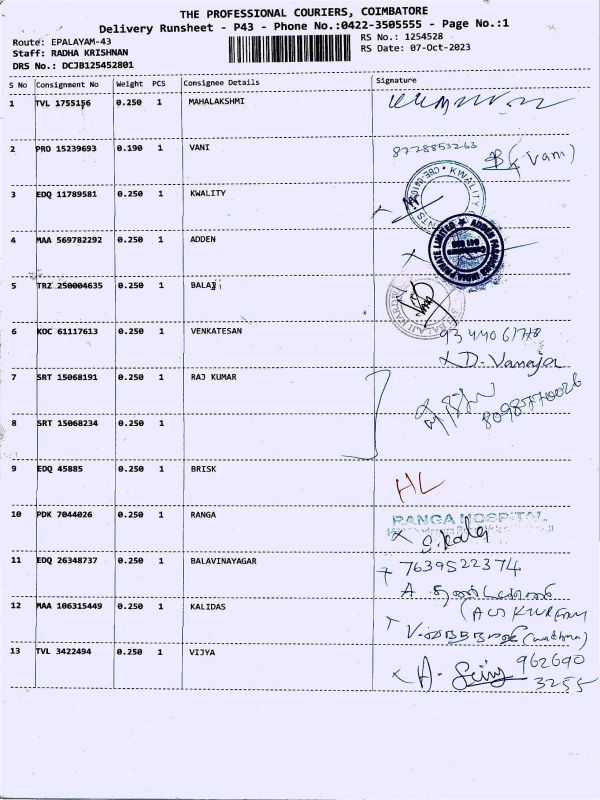 THE PROFESSIONAL COURIERS, COIMBATORE
Delivery Runsheet - P43 - Phone No.:0422-3505555 - Page No.:1
Route: EPALAYAM-43
Staff: RADHA KRISHNAN
DRS No.: DCJB125452801
RS No.: 1254528
RS Date: 07-Oct-2023
S No Consignment No Weight PCS Consignee Details Signature
1 TVL 1755156 0.250 1 MAHALAKSHMI
2 PRO 15239693 0.190 1 VANI 8778853263 (Vani)
3 EDQ 11789581 0.250 1 KWALITY
4 MAA 569782292 0.250 1 ADDEN
5 TRZ 250004635 0.250 1 BALAJI
6 KOC 61117613 0.250 1 VENKATESAN
x D. Vanaja
7 SRT 15068191 0.250 1 RAJ KUMAR
8098770026
8 SRT 15068234 0.250 1
9 EDQ 45885 0.250 1 BRISK HL
10 PDK 7044026 0.250 1 RANGA RANGA HOSPITAL
x S. Kala
11 EDQ 26348737 0.250 1 BALAVINAYAGAR 7639522374
12 MAA 106315449 0.250 1 KALIDAS
13 TVL 3422494 0.250 1 VIJYA 962690
3255